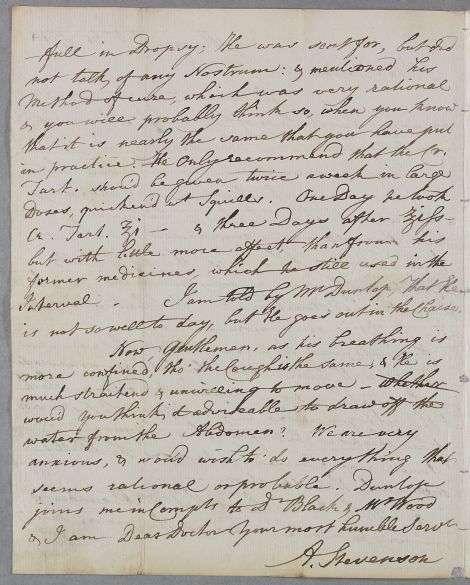 -full in Dropsy; He was sent for, but did
not talk of any Nostrum: & mentioned his
Method of cure, which was very rational
& you will probably think so, when you know
that it is nearly the same that you have put
in practice. He only recommend that the Cr.
Tart. should be given twice a week in large
Doses, quickend wt Squills. One Day he took
Cr. Tart. ℥j — & three Days after ℥jss—
but with little more effect, than from his
former medicines, which he still used in the
Interval — I am told by Mr Dunlop, that He
is not so well to day, but He goes out in the Chaise.
Now, Gentlemen, as his breathing is
more confined, tho' the Cough is the same, & He is
much straitend & unwilling to move — whether
would you think it adviseable, to draw off the
water from the Abdomen? We are very
anxious, & would wish to do everything that
seems rational or probable. Dunlop
joins me in Compts to Dr Black & Mr Wood
& I am Dear Doctor your most humble Servt
A. Stevenson